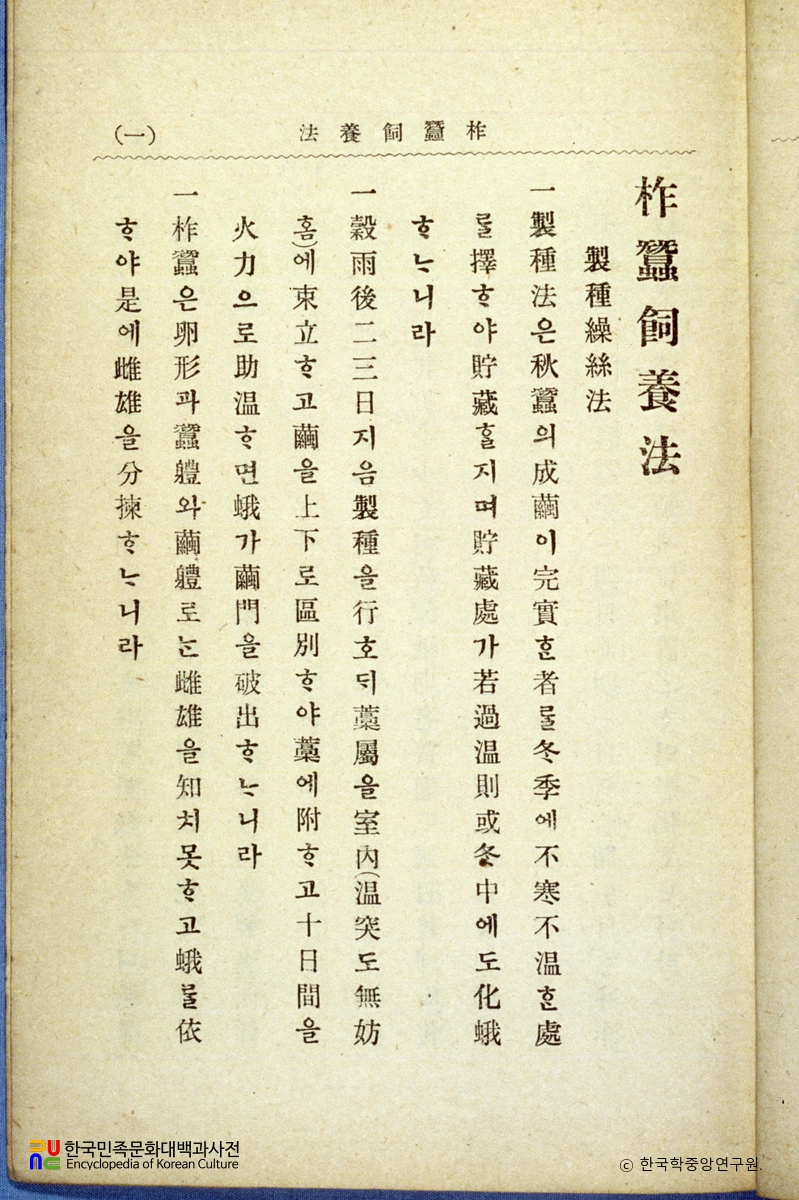 柞蠶飼養法 (一)
柞蠶飼養法
製種繰絲法
一製種法은秋蠶의成繭이完實ᄒᆞᆫ者ᄅᆞᆯ冬季에不寒不温ᄒᆞᆫ處
ᄅᆞᆯ擇ᄒᆞ야貯藏ᄒᆞᆯ지며貯藏處가若過温則或冬中에도化蛾
ᄒᆞᄂᆞ니라
一穀雨後二三日지음製種을行호ᄃᆡ藁屬을室內(温突도無妨
홈)에束立ᄒᆞ고繭을上下로區別ᄒᆞ야藁에附ᄒᆞ고十日間을
火力으로助温ᄒᆞ면蛾가繭門을破出ᄒᆞᄂᆞ니라
一柞蠶은卵形과蠶軆와繭軆로ᄂᆞᆫ雌雄을知치못ᄒᆞ고蛾ᄅᆞᆯ依
ᄒᆞ야是에雌雄을分揀ᄒᆞᄂᆞ니라
한국민족문화대백과사전
Encyclopedia of Korean Culture
© 한국학중앙연구원.